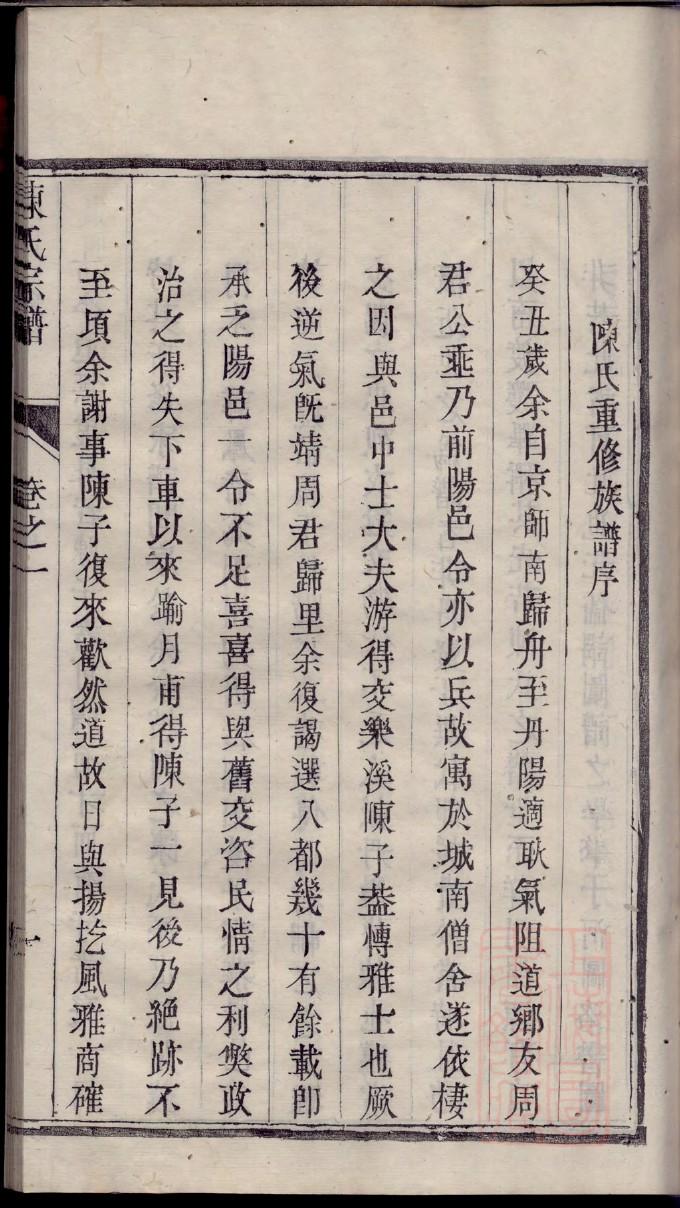 陳氏重修族譜序
癸丑歲余自京師南歸舟至丹陽適耿氣阻道鄉友周
君公乖乃前陽邑令亦以兵故寓於城南僧舍遂依棲
之因與邑中士大夫游得交樂溪陳子葢慱雅士也厥
後逆氣旣靖周君歸里余復謁選入都幾十有餘載卽
承乏陽邑一令不足喜喜得與舊交咨民情之利獘政
治之得失下車以來踰月甫得陳子一見後乃絶跡不
至頃余謝事陳子復來歡然道故日與揚扢風雅商確
陳氏宗譜
卷之一
一